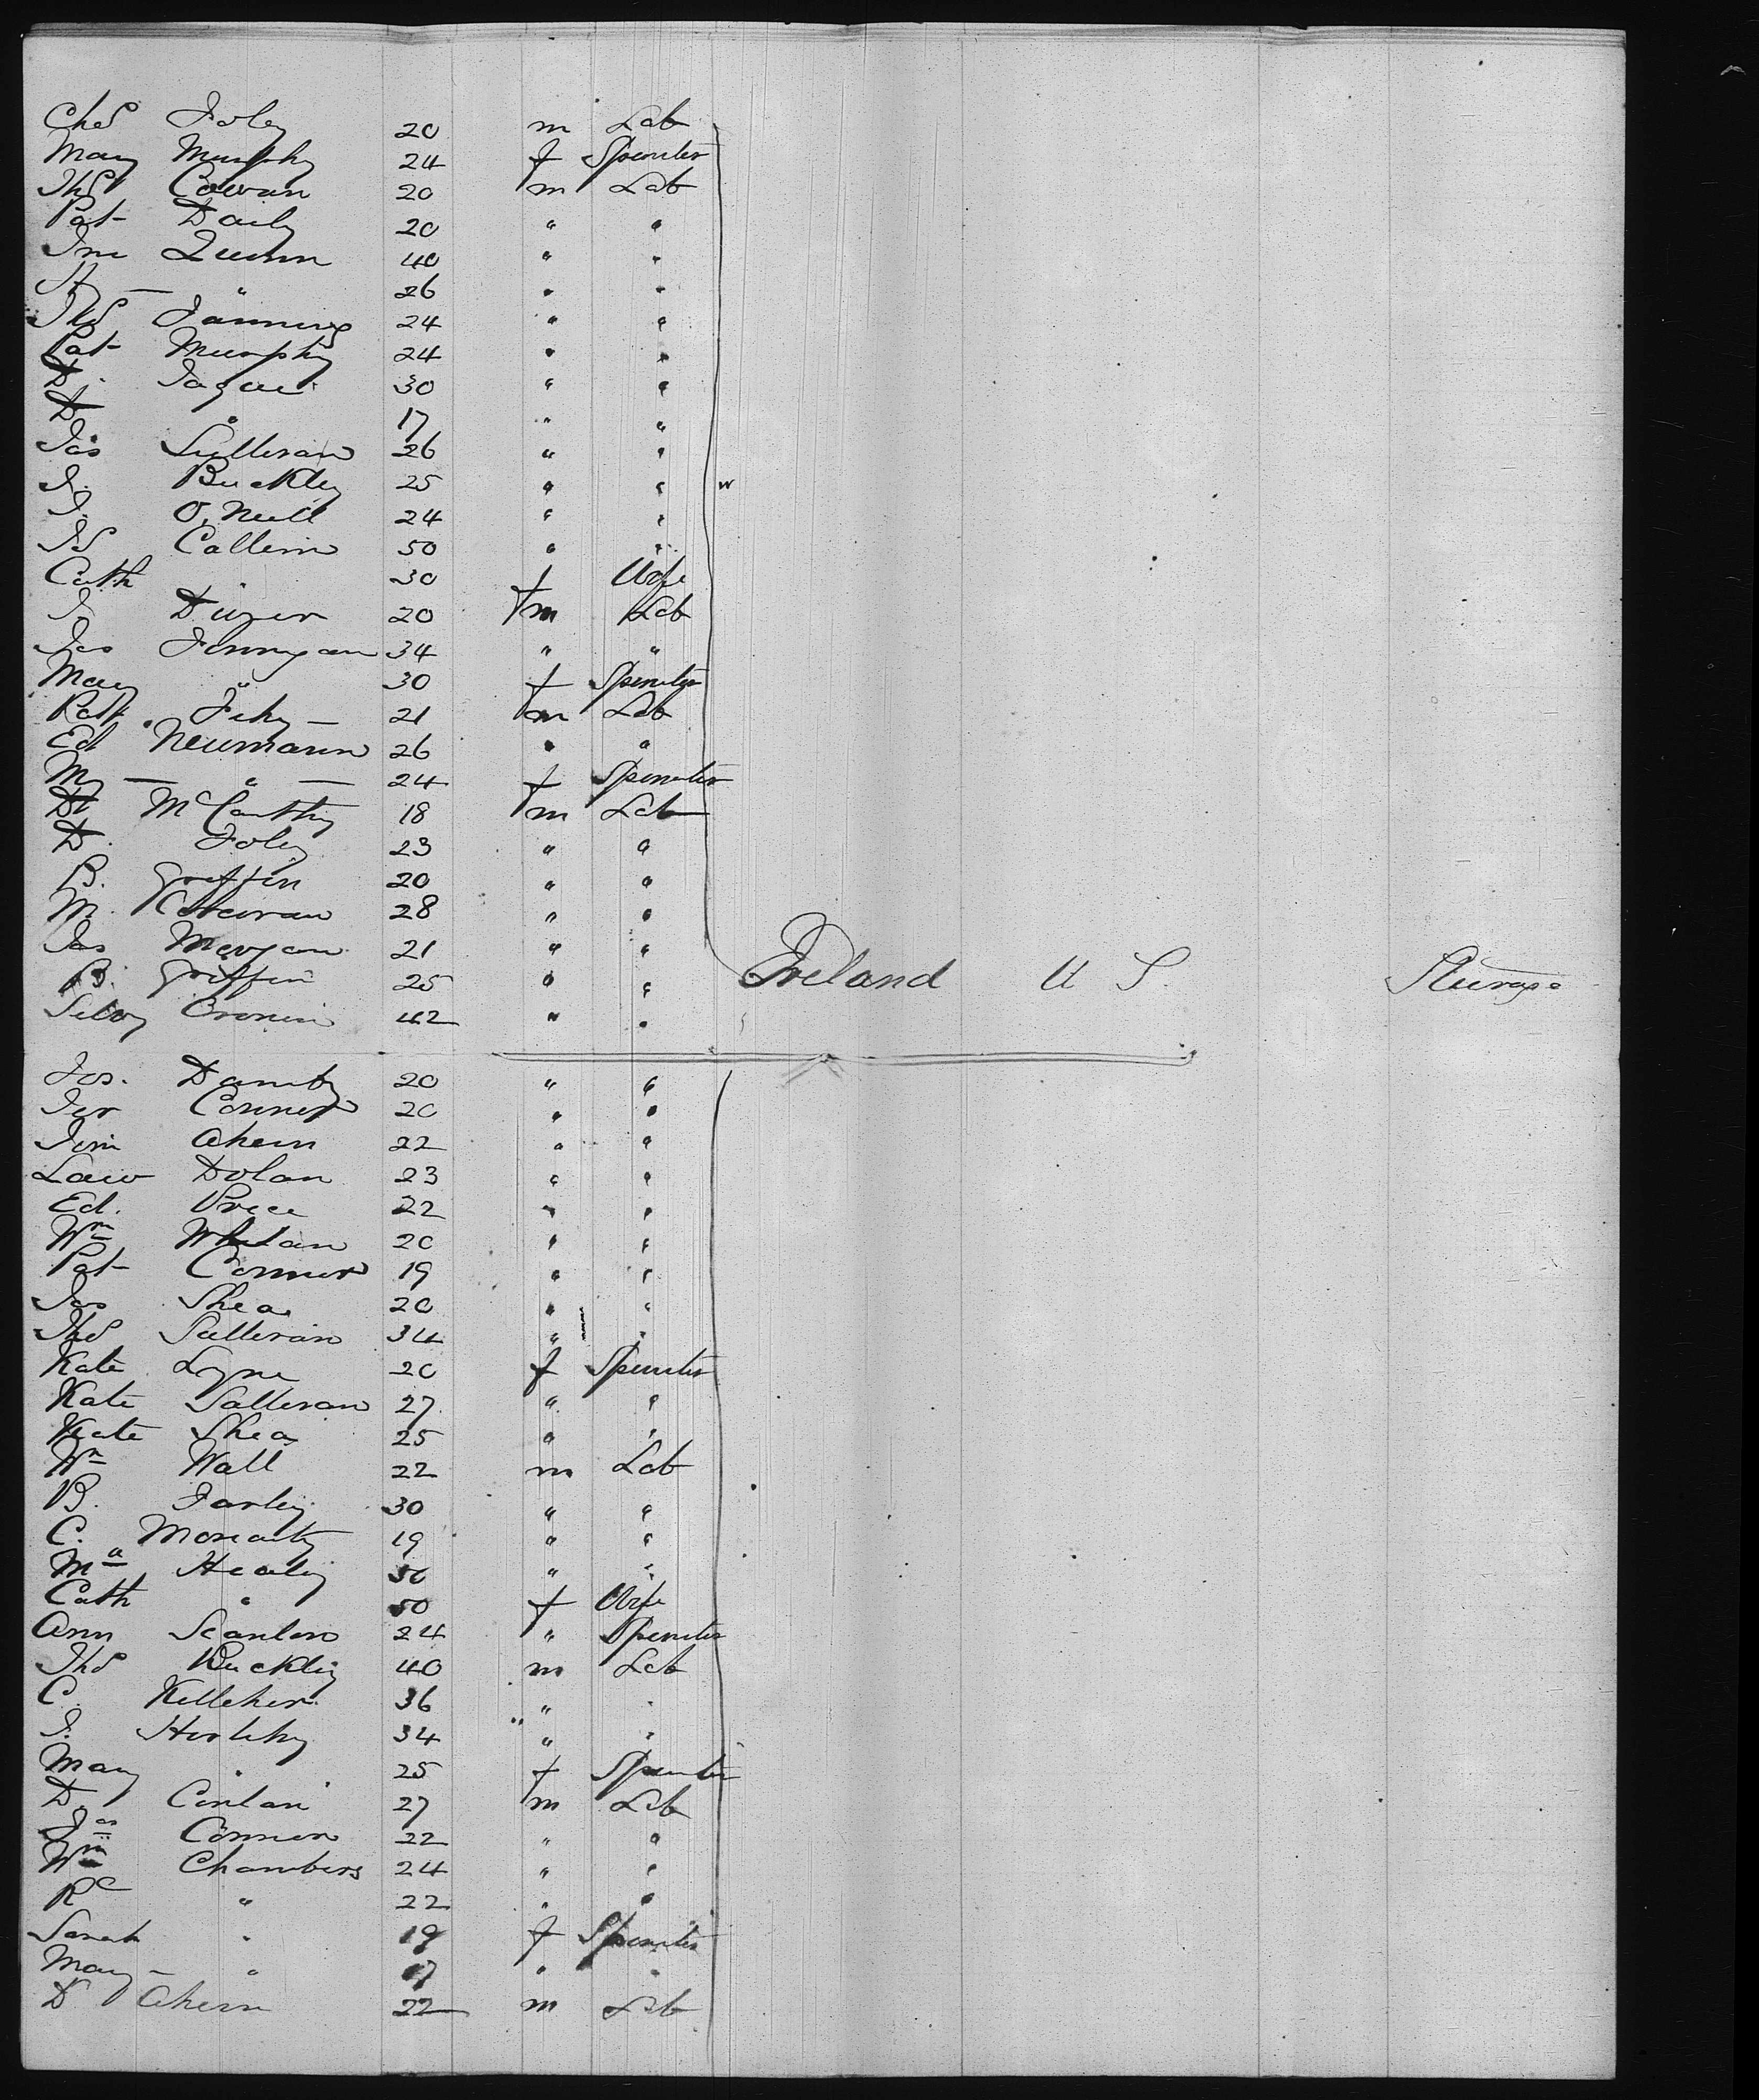 Chs Foley 20 m Lab
Mary Murphy 24 f Spinster
Ths Cowan 20 m Lab
Pat Daily 20 " "
Jno Quinn 40 " "
" 26 " "
Ths Fanning 24 " "
Pat Murphy 24 " "
D. 30 " "
D " 17 " "
Jas Sullivan 26 " "
J. Buckley 25 " "
J. O'Neill 24 " "
Js 50 " "
Cath 30 f Wife
J. Dwyer 20 m Lab
Jas Finnigan 34 " "
Mary " 30 f Spinster
Patk Fehy 21 m Lab
Ed Neumann 26 " "
My " 24 f Spinster
Dl McCarthy 18 m Lab
D. Foley 23 " "
B. Griffin 20 " "
M. Corcoran 28 " "
Jas Morgan 21 " "
B. Griffin 25 " " Ireland U S. Steerage
Cronin 42 " "
Jos. 20 " "
Jer Connor 20 " "
Jim Ahern 22 " "
Law Dolan 23 " "
Ed. Price 22 " "
Wm Whelan 20 " "
Pat Connor 19 " "
Jas Shea 20 " "
Ths Sullivan 34 " "
Kate Lyne 20 f Spinster
Kate Sullivan 27 " "
Kate Shea 25 " "
Wm Wall 22 m Lab
B. Farley 30 " "
C. Moriarty 19 " "
Healy 50 " "
Cath " 50 f Wife
Ann Scanlon 24 " Spinster
Ths Buckley 40 m Lab
C. Kelleher 36 " "
J. Herlihy 34 " "
Mary " 25 f Spinster
D. Conlan 27 m Lab
Jas Connor 22 " "
Wm Chambers 24 " "
Rd " 22 " "
Sarah " 19 f Spinster
Mary " 17 " "
D Ahern 22 m Lab